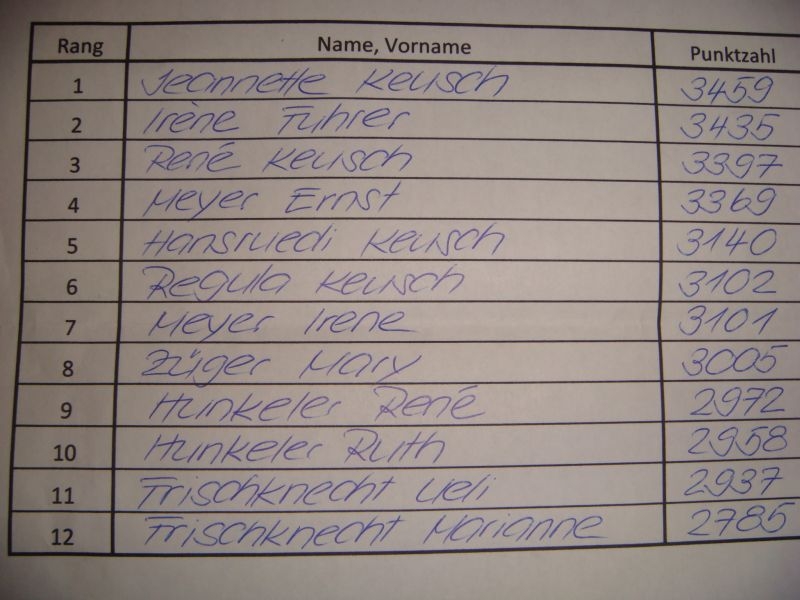 Rang Name, Vorname Punktzahl
1 Jeannette Keusch 3459
2 Irène Fuhrer 3435
3 René Keusch 3397
4 Meyer Ernst 3369
5 Hansruedi Keusch 3140
6 Regula Keusch 3102
7 Meyer Irene 3101
8 Züger Mary 3005
9 Hunkeler René 2972
10 Hunkeler Ruth 2958
11 Frischknecht Ueli 2937
12 Frischknecht Marianne 2785